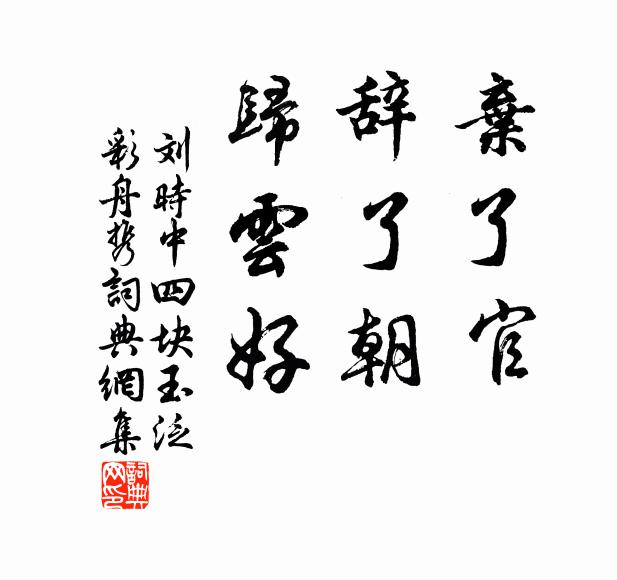 棄了官
辞了朝
歸雲好
刘時中四块玉泛
彩舟携詞典網集
詞典网印